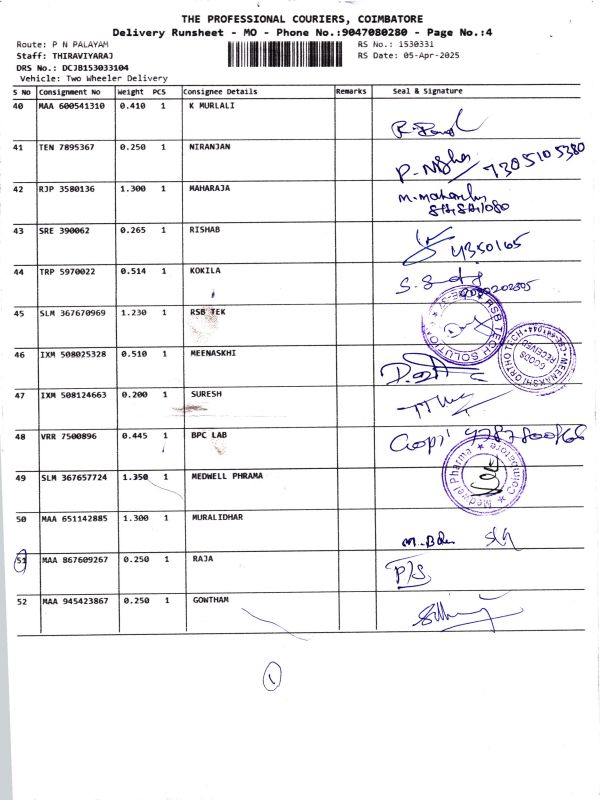 THE PROFESSIONAL COURIERS, COIMBATORE
Delivery Runsheet - MO - Phone No.:9047080280 - Page No.:4
Route: P N PALAYAM
RS No.: 1530331
Staff: THIRAVIYARAJ
RS Date: 05-Apr-2025
DRS No.: DCJB153033104
Vehicle: Two Wheeler Delivery
S No Consignment No Weight PCS Consignee Details Remarks Seal & Signature
40 MAA 600541310 0.410 1 K MURLALI
41 TEN 7895367 0.250 1 NIRANJAN
7305105380
42 RJP 3580136 1.300 1 MAHARAJA
43 SRE 390062 0.265 1 RISHAB
44 TRP 5970022 0.514 1 KOKILA
45 SLM 367670969 1.230 1 RSB TEK
RSB TECH SOLUTIO
46 IXM 508025328 0.510 1 MEENASKHI
MEENAKSHI ORTHO TECH
GOODS
RECEIVED
47 IXM 508124663 0.200 1 SURESH
48 VRR 7500896 0.445 1 BPC LAB
Gopi
49 SLM 367657724 1.350 1 MEDWELL PHRAMA
Medwel Pharma Coimbatore
50 MAA 651142885 1.300 1 MURALIDHAR
51 MAA 867609267 0.250 1 RAJA
P/S
52 MAA 945423867 0.250 1 GOWTHAM
1